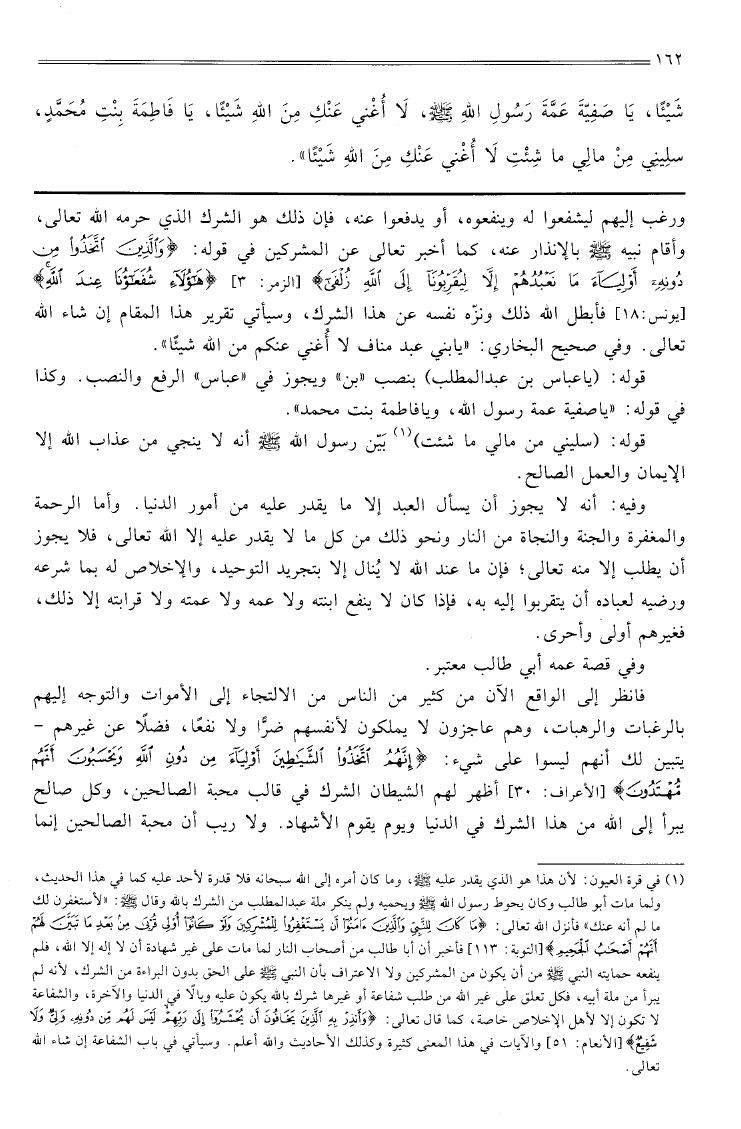 ١٦٢
شَيْئًا، يَا صَفِيَّةَ عَمَّةَ رَسُولِ اللهِ ﷺ، لَا أُغْني عَنْكِ مِنَ اللهِ شَيْئًا، يَا فَاطِمَةَ بِنْتِ مُحَمَّدٍ،
سلِيني مِنْ مالِي ما شِئْتِ لَا أُغْني عَنْكِ مِنَ اللهِ شَيْئًا».
ورغب إليهم ليشفعوا له وينفعوه، أو يدفعوا عنه، فإن ذلك هو الشرك الذي حرمه الله تعالى،
وأقام نبيه ﷺ بالإنذار عنه، كما أخبر تعالى عن المشركين في قوله: ﴿وَٱلَّذِينَ ٱتَّخَذُوا۟ مِن
دُونِهِۦٓ أَوْلِيَآءَ مَا نَعْبُدُهُمْ إِلَّا لِيُقَرِّبُونَآ إِلَى ٱللَّهِ زُلْفَىٰٓ﴾ [الزمر: ٣] ﴿هَٰٓؤُلَآءِ شُفَعَٰٓؤُنَا عِندَ ٱللَّهِ﴾
[يونس:١٨] فأبطل الله ذلك ونزّه نفسه عن هذا الشرك، وسيأتي تقرير هذا المقام إن شاء الله
تعالى. وفي صحيح البخاري: «يابني عبد مناف لا أُغني عنكم من الله شيئًا».
قوله: (ياعباس بن عبدالمطلب) بنصب «بن» ويجوز في «عباس» الرفع والنصب. وكذا
في قوله: «ياصفية عمة رسول الله، ويافاطمة بنت محمد».
قوله: (سليني من مالي ما شئت)(١) بَيّن رسول الله ﷺ أنه لا ينجي من عذاب الله إلا
الإيمان والعمل الصالح.
وفيه: أنه لا يجوز أن يسأل العبد إلا ما يقدر عليه من أمور الدنيا. وأما الرحمة
والمغفرة والجنة والنجاة من النار ونحو ذلك من كل ما لا يقدر عليه إلا الله تعالى، فلا يجوز
أن يطلب إلا منه تعالى؛ فإن ما عند الله لا يُنال إلا بتجريد التوحيد، والإخلاص له بما شرعه
ورضيه لعباده أن يتقربوا إليه به، فإذا كان لا ينفع ابنته ولا عمه ولا عمته ولا قرابته إلا ذلك،
فغيرهم أولى وأحرى.
وفي قصة عمه أبي طالب معتبر.
فانظر إلى الواقع الآن من كثير من الناس من الالتجاء إلى الأموات والتوجه إليهم
بالرغبات والرهبات، وهم عاجزون لا يملكون لأنفسهم ضرًّا ولا نفعًا، فضلًا عن غيرهم –
يتبين لك أنهم ليسوا على شيء: ﴿إِنَّهُمُ ٱتَّخَذُوا۟ ٱلشَّيَٰطِينَ أَوْلِيَآءَ مِن دُونِ ٱللَّهِ وَيَحْسَبُونَ أَنَّهُم
مُّهْتَدُونَ﴾ [الأعراف: ٣٠] أظهر لهم الشيطان الشرك في قالب محبة الصالحين، وكل صالح
يبرأ إلى الله من هذا الشرك في الدنيا ويوم يقوم الأشهاد. ولا ريب أن محبة الصالحين إنما
(١) في قرة العيون: لأن هذا هو الذي يقدر عليه ﷺ، وما كان أمره إلى الله سبحانه فلا قدرة لأحد عليه كما في هذا الحديث،
ولما مات أبو طالب وكان يحوط رسول الله ﷺ ويحميه ولم ينكر ملة عبدالمطلب من الشرك بالله وقال ﷺ: «لأستغفرن لك
ما لم أنه عنك» فأنزل الله تعالى: ﴿مَا كَانَ لِلنَّبِيِّ وَٱلَّذِينَ ءَامَنُوٓا۟ أَن يَسْتَغْفِرُوا۟ لِلْمُشْرِكِينَ وَلَوْ كَانُوٓا۟ أُو۟لِى قُرْبَىٰ مِنۢ بَعْدِ مَا تَبَيَّنَ لَهُمْ
أَنَّهُمْ أَصْحَٰبُ ٱلْجَحِيمِ﴾ [التوبة: ١١٣] فأخبر أن أبا طالب من أصحاب النار لما مات على غير شهادة أن لا إله إلا الله، فلم
ينفعه حمايته النبي ﷺ من أن يكون من المشركين ولا الاعتراف بأن النبي ﷺ على الحق بدون البراءة من الشرك، لأنه لم
يبرأ من ملة أبيه، فكل تعلق على غير الله من طلب شفاعة أو غيرها شرك بالله يكون عليه وبالًا في الدنيا والآخرة، والشفاعة
لا تكون إلا لأهل الإخلاص خاصة، كما قال تعالى: ﴿وَأَنذِرْ بِهِ ٱلَّذِينَ يَخَافُونَ أَن يُحْشَرُوٓا۟ إِلَىٰ رَبِّهِمْ لَيْسَ لَهُم مِّن دُونِهِۦ وَلِىٌّ وَلَا
شَفِيعٌ﴾ [الأنعام: ٥١] والآيات في هذا المعنى كثيرة وكذلك الأحاديث والله أعلم. وسيأتي في باب الشفاعة إن شاء الله
تعالى.